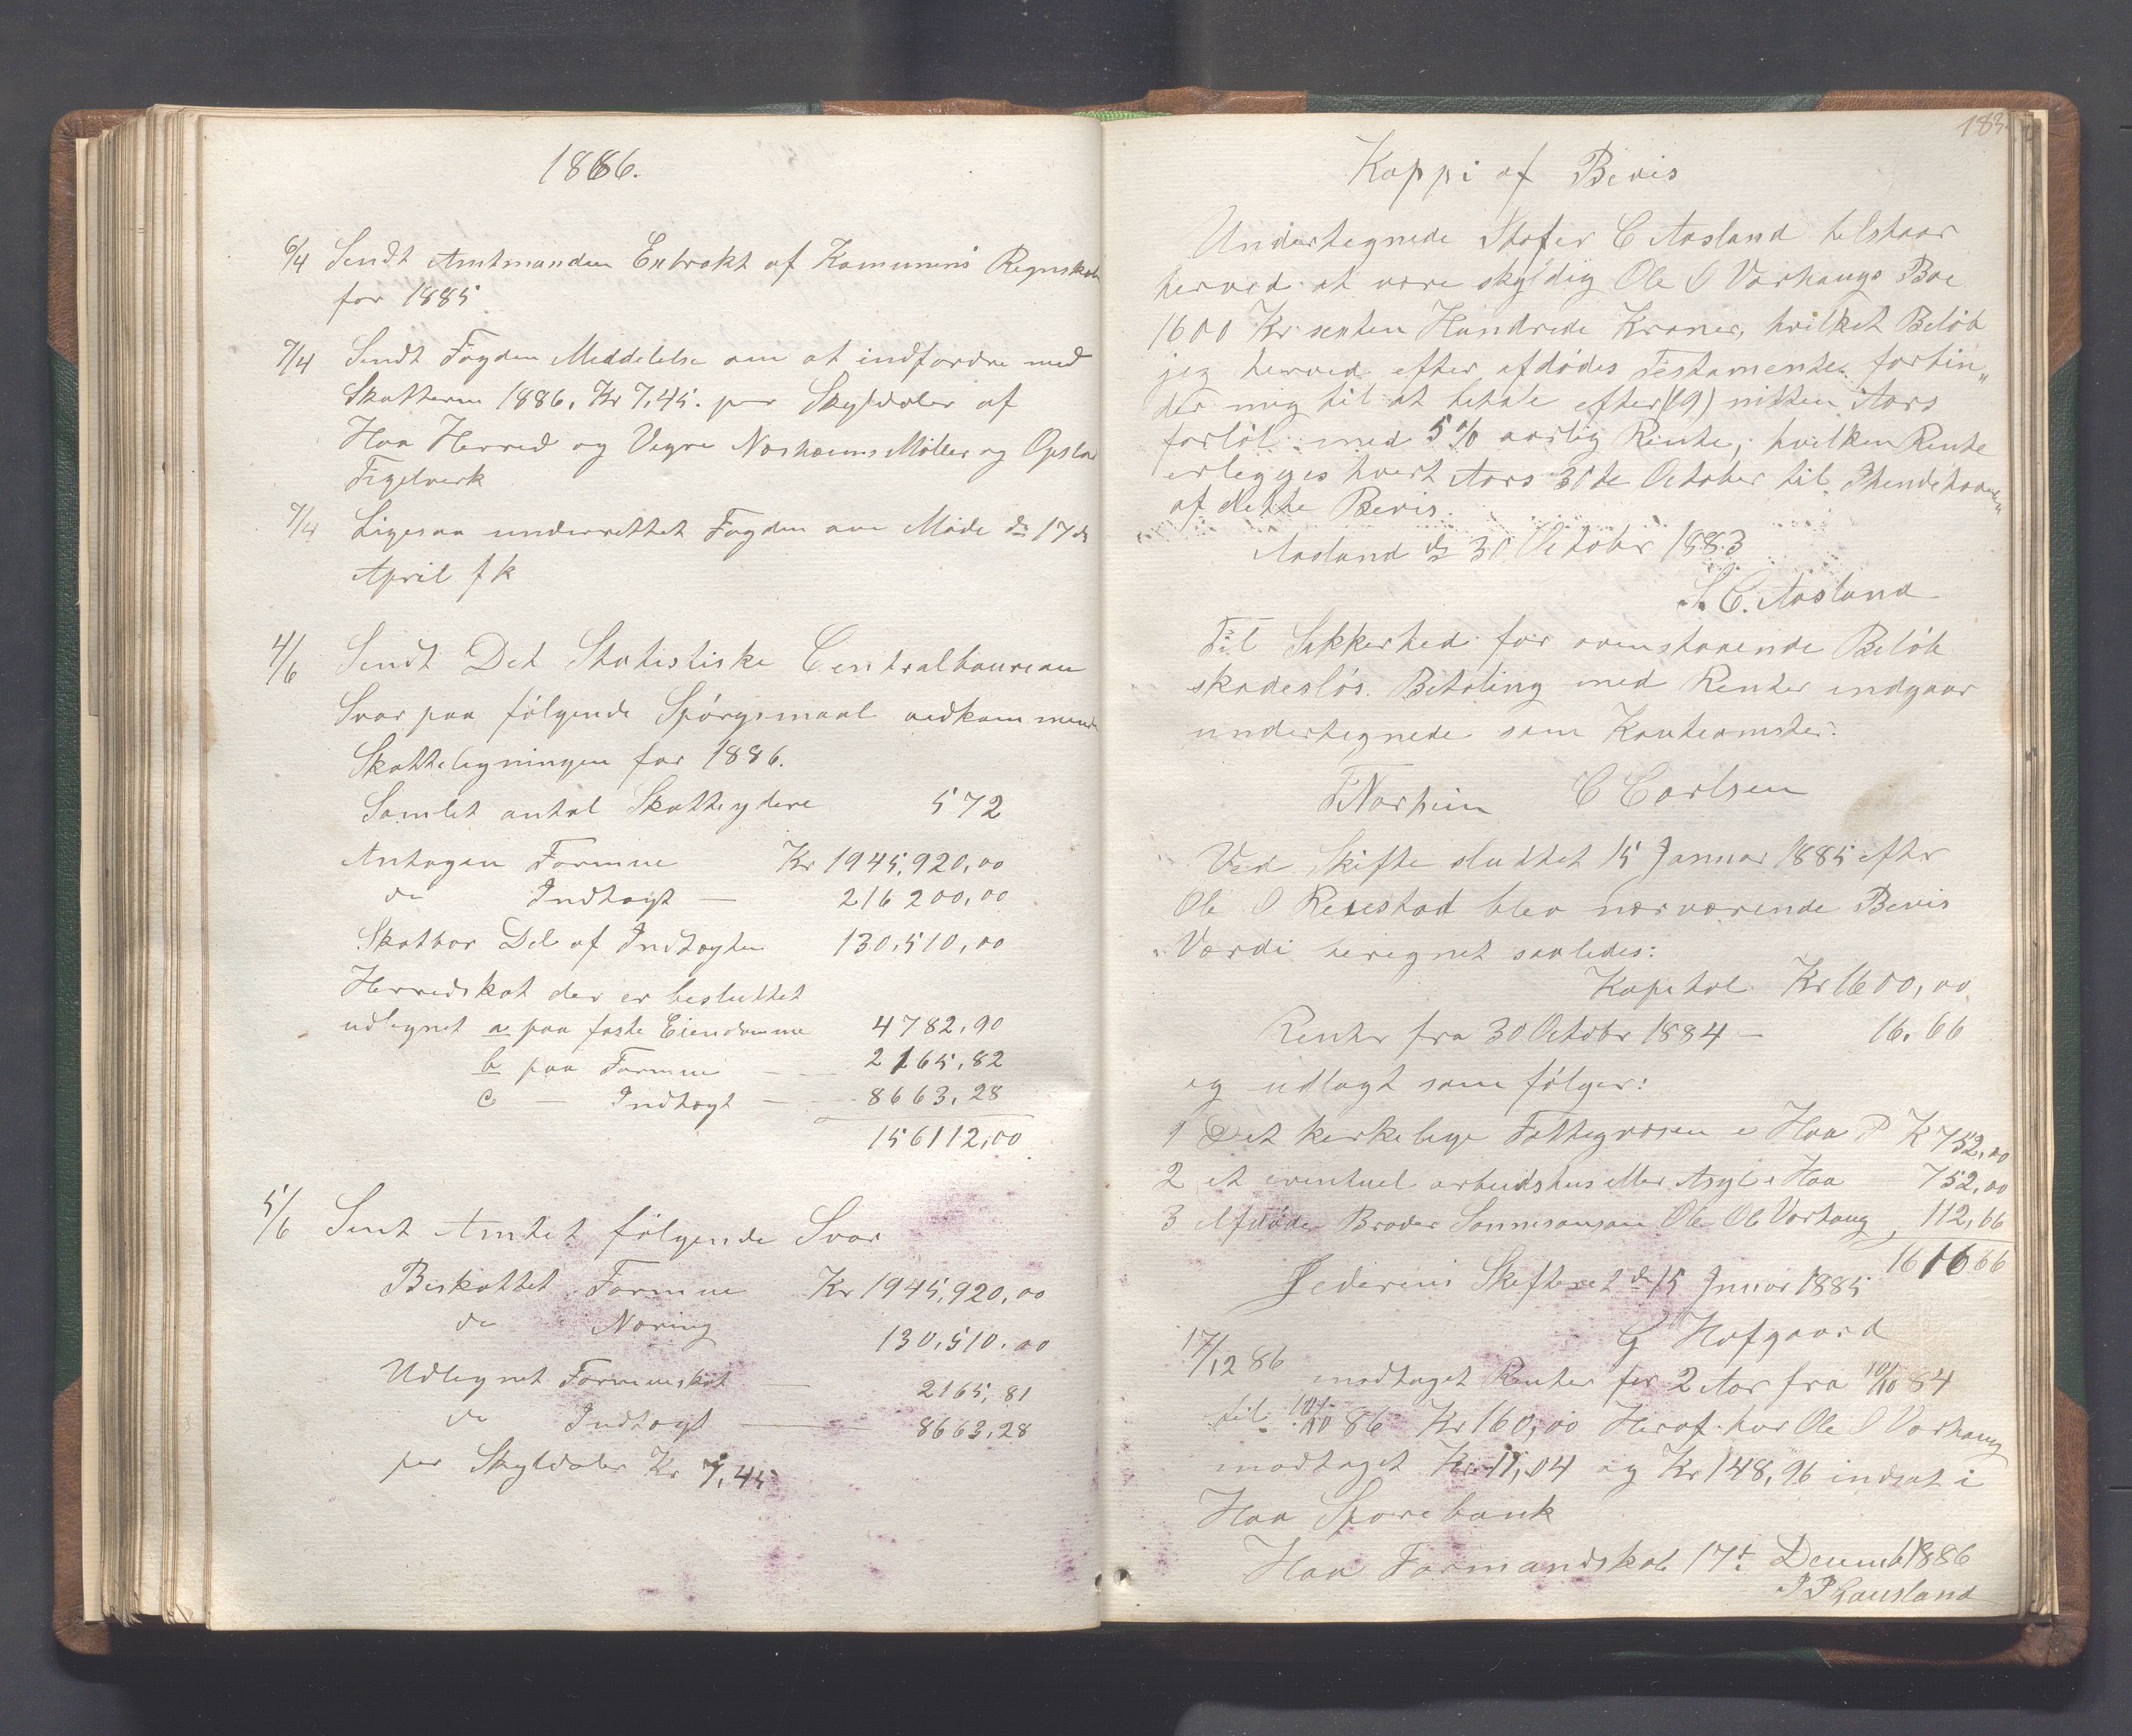 1886.
6/4 Sendt Amtmanden Extrakt af Komunens Regnskab
for 1885
7/4 Sendt Fogden Meddelelse om at indfordre med
Skatterne 1886, Kr 7,45. per Skyldaler af
Haa Herred og Vigre Nærheims Møller og Opstad
Tegelverk
7/4 Ligesaa underrettet Fogden om Møde d 17 ds
April f k
4/6 Sendt Det Statistiske Centralbaureau
Svar paa følgende Spørgsmaal vedkommende
Skatteligningen for 1886.
Samlet antal Skatteydere 572
Antagen Formue Kr 1945,920,00
do Indtægt — 216200,00
Skatbar Del af Indtægten 130,510,00
Herredskat der er besluttet
udlignet a paa faste Eiendomme 4782,90
b paa Formue — 2165,82
c — Indtægt — 8663,28
156112,00
5/6 Sent Amtet følgende Svar
Beskattet Formue Kr 1945,920,00
do Næring 130,510.00
Udlignet Formueskat — 2165,81
do Indtægt — 8663,28
per Skyldaler Kr 7,45
183
Koppi af Bevis
Undertegnede Stofer C Aasland tilstaar
herved at være skyldig Ole O Varhaugs Boe
1600 Kr. sexten Hundrede Kroner, hvilket Beløb
jeg herved efter afdødes Testamente forbin„
der mig til at betale efter (19) nitten Aars
forløb med 5 % aarlig Rente, hvilken Rente
erlegges hvert Aars 30te October til Ihendehaveren
af dette Bevis.
Aasland d 30 October 1883
S. C. Aasland
Til Sikkerhed for ovenstaaende Beløb
skadesløs Betaling med Renter indgaar
undertegnede som Kautionister.
T Norheim C Carlsen
Ved Skifte sluttet 15 Januar 1885 efter
Ole O Reiestad blev nærværende Bevis
Værdi beregnet saaledes:
Kapital Kr 1600,00
Renter fra 30 Octobr 1884 — 16.66
og udlagt som følger:
1 Det kirkelige Fattigvæsen i Haa P K 752,00
2 et eventuel arbeidshus eller Asyl i Haa 752,00
3 Afdødes Broder Sønnesønsøn Ole Ole Varhaug, 112,66
1616 66
Jederens Skifteret d 15 Januar 1885
G Hofgaard
17/12 86 modtaget Renter for 2 Aar fra 10/10 84
til 10/10 86 Kr 160,00 Heraf har Ole O Varhaug
modtaget Kr 11,04 og Kr 148,96 indsat i
Haa Sparebank
Haa Formandskab 17t Decemb 1886